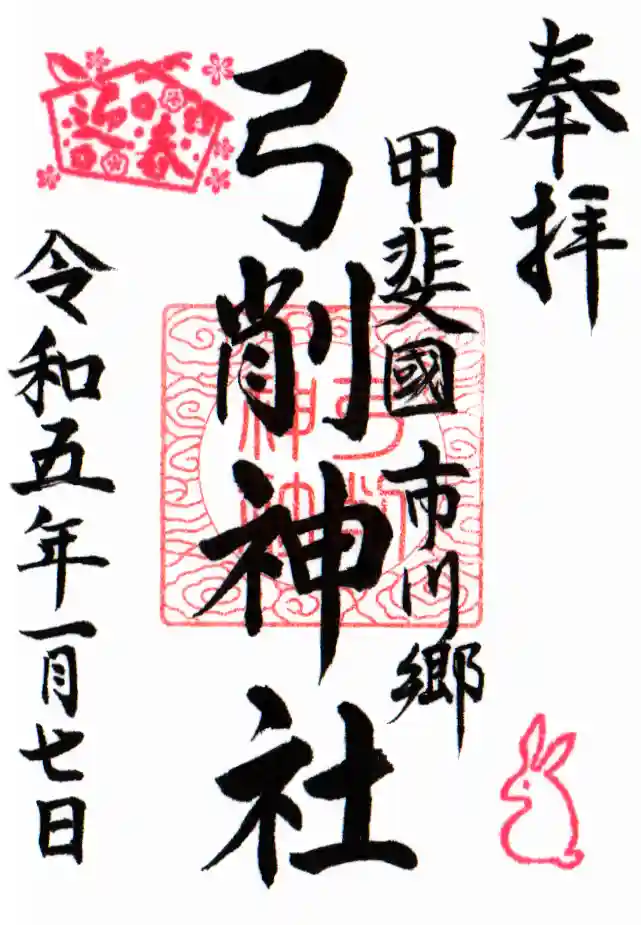 奉拝
甲斐國市川郷
弓削神社
迎春
令和五年一月七日